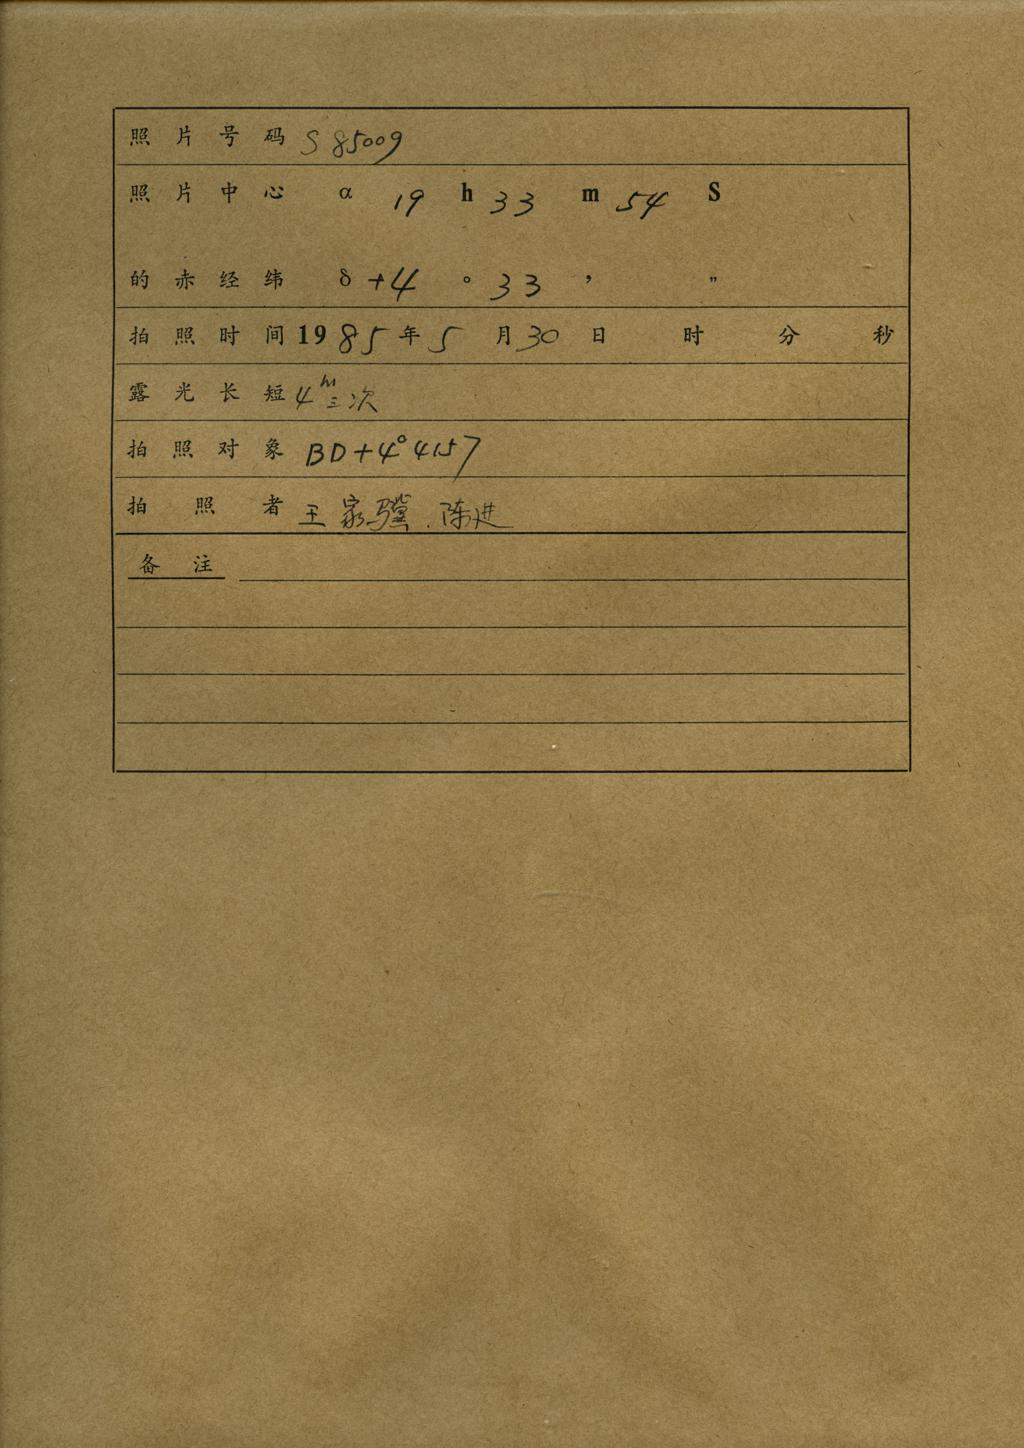 照片号码 S 85009
照片中心 α 19 h 33 m 54 S
的赤经纬 δ +4 ° 33 ′ ″
拍照时间 1985年5月30日 时 分 秒
露光长短 4m 三次
拍照对象 BD+4°4157
拍照者 王家骥.陈进
备注